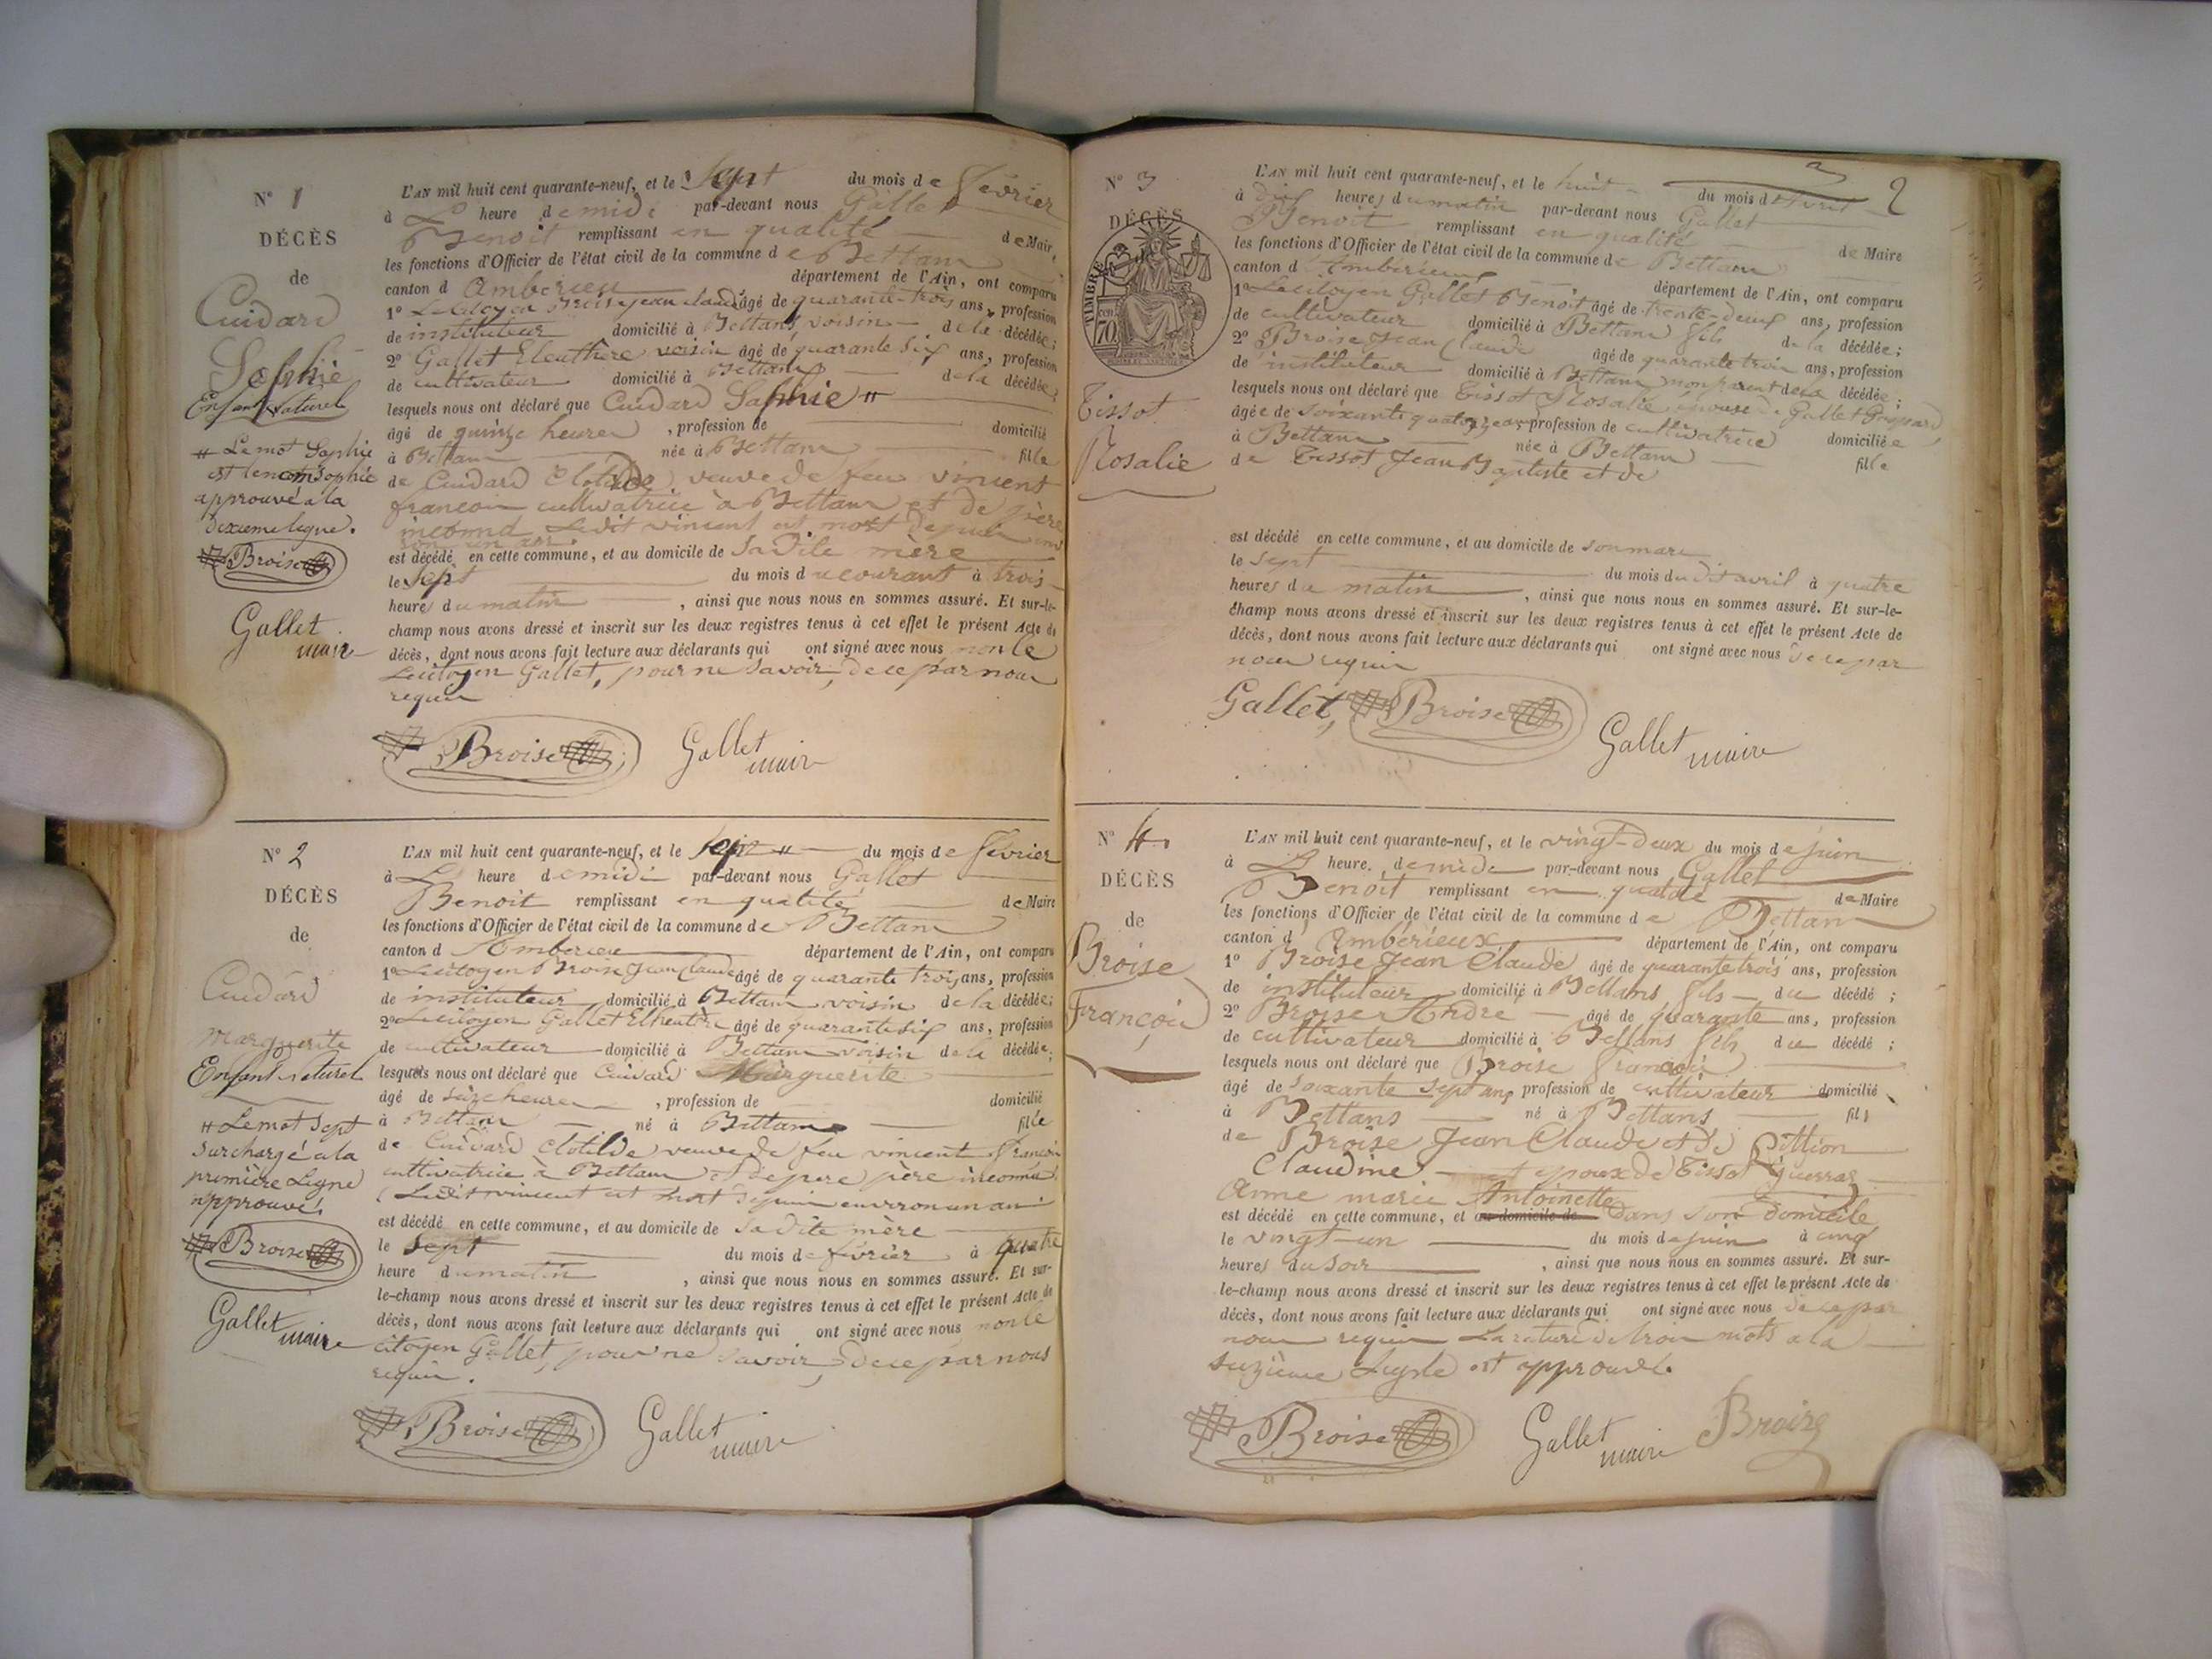 N° 1
DÉCÈS
de
Cuidard
Sophie
Enfant Naturel
# Le mot Sophie
approuvé a la
dixieme ligne.
Broise
Gallet
maire
L'AN mil huit cent quarante-neuf, et le Sept du mois de février
à heure de midi par-devant nous Gallet
Benoit remplissant en qualité de Maire
les fonctions d'Officier de l'état civil de la commune de Bettans
canton d Amberieu département de l'Ain, ont comparu
1° Le Citoyen Broise jean claude âgé de quarante-trois ans, profession
de instituteur domicilié à Bettans voisin de la décédée;
2° Gallet Eleuthère voisin âgé de quarante six ans, profession
de cultivateur domicilié à Bettans de la décédée;
lesquels nous ont déclaré que Cuidard Sophie #
âgé de quinze heures, profession de domicilié
à Bettans née à Bettans fille
de Cuidard Clotilde veuve de feu vincent
francois cultivatrice à Bettans et de père
inconnu Ledit vincent est mort depuis
est décédé en cette commune, et au domicile de sa dite mère
le Sept du mois du courant à trois
heures du matin, ainsi que nous nous en sommes assuré. Et sur-le-
champ nous avons dressé et inscrit sur les deux registres tenus à cet effet le présent Acte de
décès, dont nous avons fait lecture aux déclarants qui ont signé avec nous non le
Le citoyen Gallet, pour ne savoir, de ce par nous
requis
Broise Gallet
maire
N° 2
DÉCÈS
de
Cuidard
Marguerite
Enfant Naturel
# Le mot Sept
surchargé a la
première Ligne
approuvé.
Broise
Gallet
maire
L'AN mil huit cent quarante-neuf, et le Sept # du mois de février
à heure de midi par-devant nous Gallet
Benoit remplissant en qualité de Maire
les fonctions d'Officier de l'état civil de la commune de Bettans
canton d Amberieu département de l'Ain, ont comparu
1° Le citoyen Broise Jean Claude âgé de quarante trois ans, profession
de instituteur domicilié à Bettans voisin de la décédée;
2° Le citoyen Gallet Elheutère âgé de quarante six ans, profession
de cultivateur domicilié à Bettans voisin de la décédée;
lesquels nous ont déclaré que Cuidard Marguerite
âgé de seize heures, profession de domicilié
à Bettans né à Bettans fille
de Cuidard Clotilde veuve de feu vincent francois
cultivatrice à Bettans et de père inconnu
(Ledit vincent est mort depuis environ un an
est décédé en cette commune, et au domicile de sa dite mère
le Sept du mois de février à quatre
heure du matin, ainsi que nous nous en sommes assuré. Et sur-
le-champ nous avons dressé et inscrit sur les deux registres tenus à cet effet le présent Acte de
décès, dont nous avons fait lecture aux déclarants qui ont signé avec nous non le
citoyen Gallet, pour ne savoir, de ce par nous
requis.
Broise Gallet
maire
2
N° 3
DÉCÈS
TIMBRE
70
Tissot
Rosalie
L'AN mil huit cent quarante-neuf, et le huit du mois d'Avril
à dix heures du matin par-devant nous Gallet
Benoit remplissant en qualité de Maire
les fonctions d'Officier de l'état civil de la commune de Bettans
canton d'Ambérieux département de l'Ain, ont comparu
1° Le citoyen Gallet Benoit âgé de trente-deux ans, profession
de cultivateur domicilié à Bettans fils de la décédée;
2° Broise Jean Claude âgé de quarante trois ans, profession
de instituteur domicilié à Bettans non parent de la décédée;
lesquels nous ont déclaré que Tissot Rosalie épouse de Gallet
âgée de soixante quatorze ans profession de cultivatrice domiciliée
à Bettans née à Bettans fille
de Tissot Jean Baptiste et de
est décédé en cette commune, et au domicile de son mari
le sept du mois du dit avril à quatre
heures du matin, ainsi que nous nous en sommes assuré. Et sur-le-
champ nous avons dressé et inscrit sur les deux registres tenus à cet effet le présent Acte de
décès, dont nous avons fait lecture aux déclarants qui ont signé avec nous de ce par
nous requis
Gallet, Broise Gallet
maire
N° 4.
DÉCÈS
de
Broise
François
L'AN mil huit cent quarante-neuf, et le vingt-deux du mois de juin
à heure de midi par-devant nous Gallet
Benoit remplissant en qualité de Maire
les fonctions d'Officier de l'état civil de la commune de Bettans
canton d'Ambérieux département de l'Ain, ont comparu
1° Broise Jean Claude âgé de quarante trois ans, profession
de instituteur domicilié à Bettans fils du décédé;
2° Broise Andre âgé de quarante ans, profession
de cultivateur domicilié à Bettans fils du décédé;
lesquels nous ont déclaré que Broise François
âgé de soixante sept ans profession de cultivateur domicilié
à Bettans né à Bettans fils
de Broise Jean Claude et de Pittion
Claudine et epoux de Tissot Guerraz
Anne marie Antoinette
est décédé en cette commune, et au domicile de dans son domicile
le vingt-un du mois de juin à cinq
heures du soir, ainsi que nous nous en sommes assuré. Et sur-
le-champ nous avons dressé et inscrit sur les deux registres tenus à cet effet le présent Acte de
décès, dont nous avons fait lecture aux déclarants qui ont signé avec nous de ce par
nous requis La rature de trois mots a la
seizième Ligne est approuvé.
Broise Gallet
maire Broise